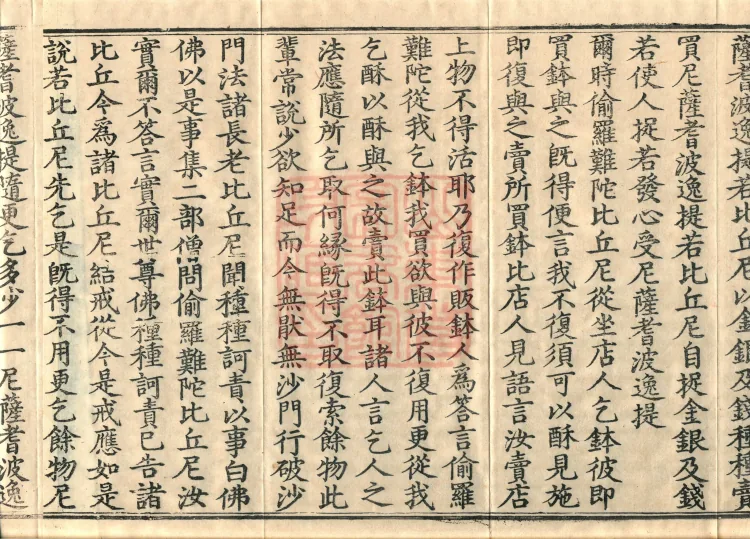 薩耆波逸提若比丘尼以金銀及錢種種賣
買尼薩耆波逸提若比丘尼自捉金銀及錢
若使人捉若發心受尼薩耆波逸提
爾時偷羅難陀比丘尼從坐店人乞鉢彼即
買鉢與之既得便言我不復須可以酥見施
即復與之賣所買鉢比店人見語言汝賣店
上物不得活耶乃復作販鉢人為答言偷羅
難陀從我乞鉢我買欲與彼不復用更從我
乞酥以酥與之故賣此鉢耳諸人言乞人之
法應隨所乞取何緣既得不取復索餘物此
輩常說少欲知足而今無猒無沙門行破沙
門法諸長老比丘尼聞種種訶責以事白佛
佛以是事集二部僧問偷羅難陀比丘尼汝
實爾不答言實爾世尊佛種種訶責已告諸
比丘今為諸比丘尼結戒從今是戒應如是
說若比丘尼先乞是既得不用更乞餘物尼
薩耆波逸提隨更乞多少一一尼薩耆波逸